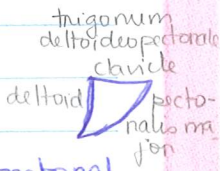 trigonum
deltoideopectorale
clavicle
deltoid pecto-
ralis ma
jor